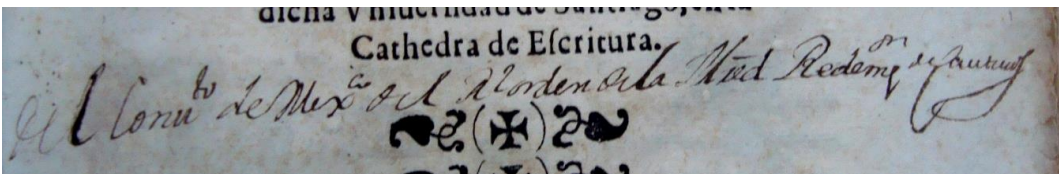 dicha Vniuerſidad de Santiago, en la
Cathedra de Eſcritura.
del Conuto de Mexco del Rl orden de la Mrd Redempon de Cautivos